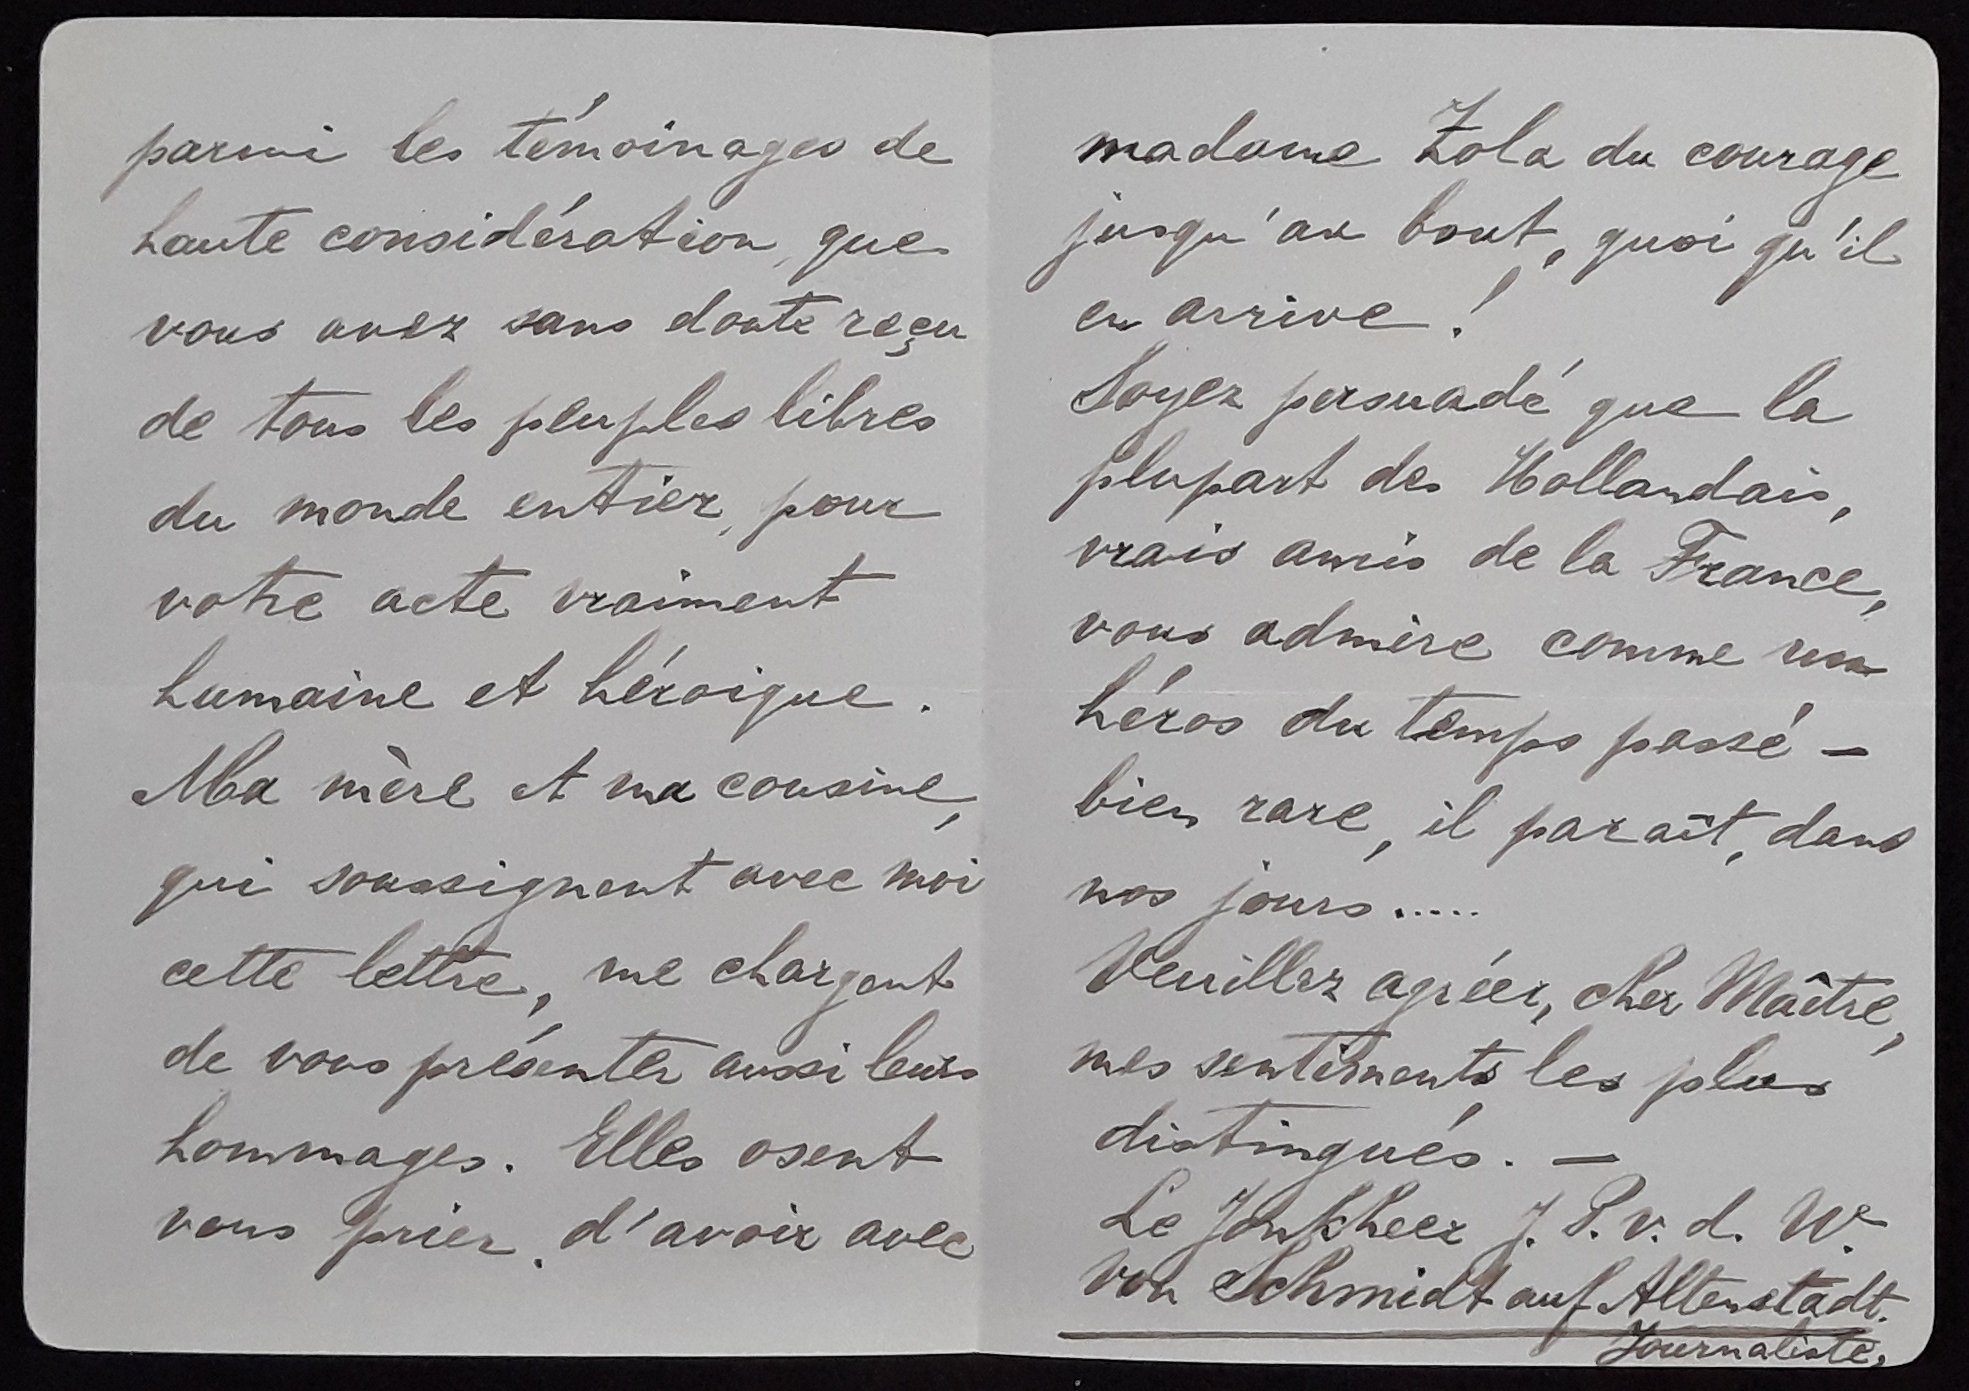 parmi les témoinages de
haute considération, que
vous avez sans doute reçu
de tous les peuples libres
du monde entier, pour
votre acte vraiment
humaine et héroique.
Ma mère et ma cousine,
qui soussignent avec moi
cette lettre, me chargent
de vous présenter aussi leurs
hommages. Elles osent
vous prier, d'avoir avec
madame Zola du courage
jusqu'au bout, quoi qu'il
en arrive!
Soyez persuadé que la
plupart des Hollandais,
vrais amis de la France,
vous admire comme un
héros du temps passé —
bien rare, il paraît, dans
nos jours.....
Veuillez agréer, cher Maître,
mes sentiments les plus
distingués. —
Le Jonkheer J. P. v. d. W.
von Schmidt auf Altenstadt.
Journaliste.